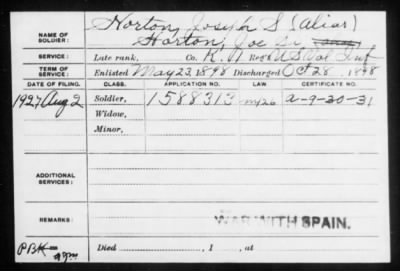 NAME OF SOLDIER: Horton, Joseph S (Alias)
Horton, Joe Sr.
SERVICE: Late rank, Co. K, Reg't U S Vol Inf
TERM OF SERVICE: Enlisted May 23, 1898 Discharged Oct 28, 1898
DATE OF FILING. CLASS. APPLICATION NO. LAW CERTIFICATE NO.
1927 Aug 2 Soldier, 1588313 my26 a-9-30-31
Widow,
Minor,
ADDITIONAL SERVICES:
REMARKS: WAR WITH SPAIN.
PBK
Died , 1 , at